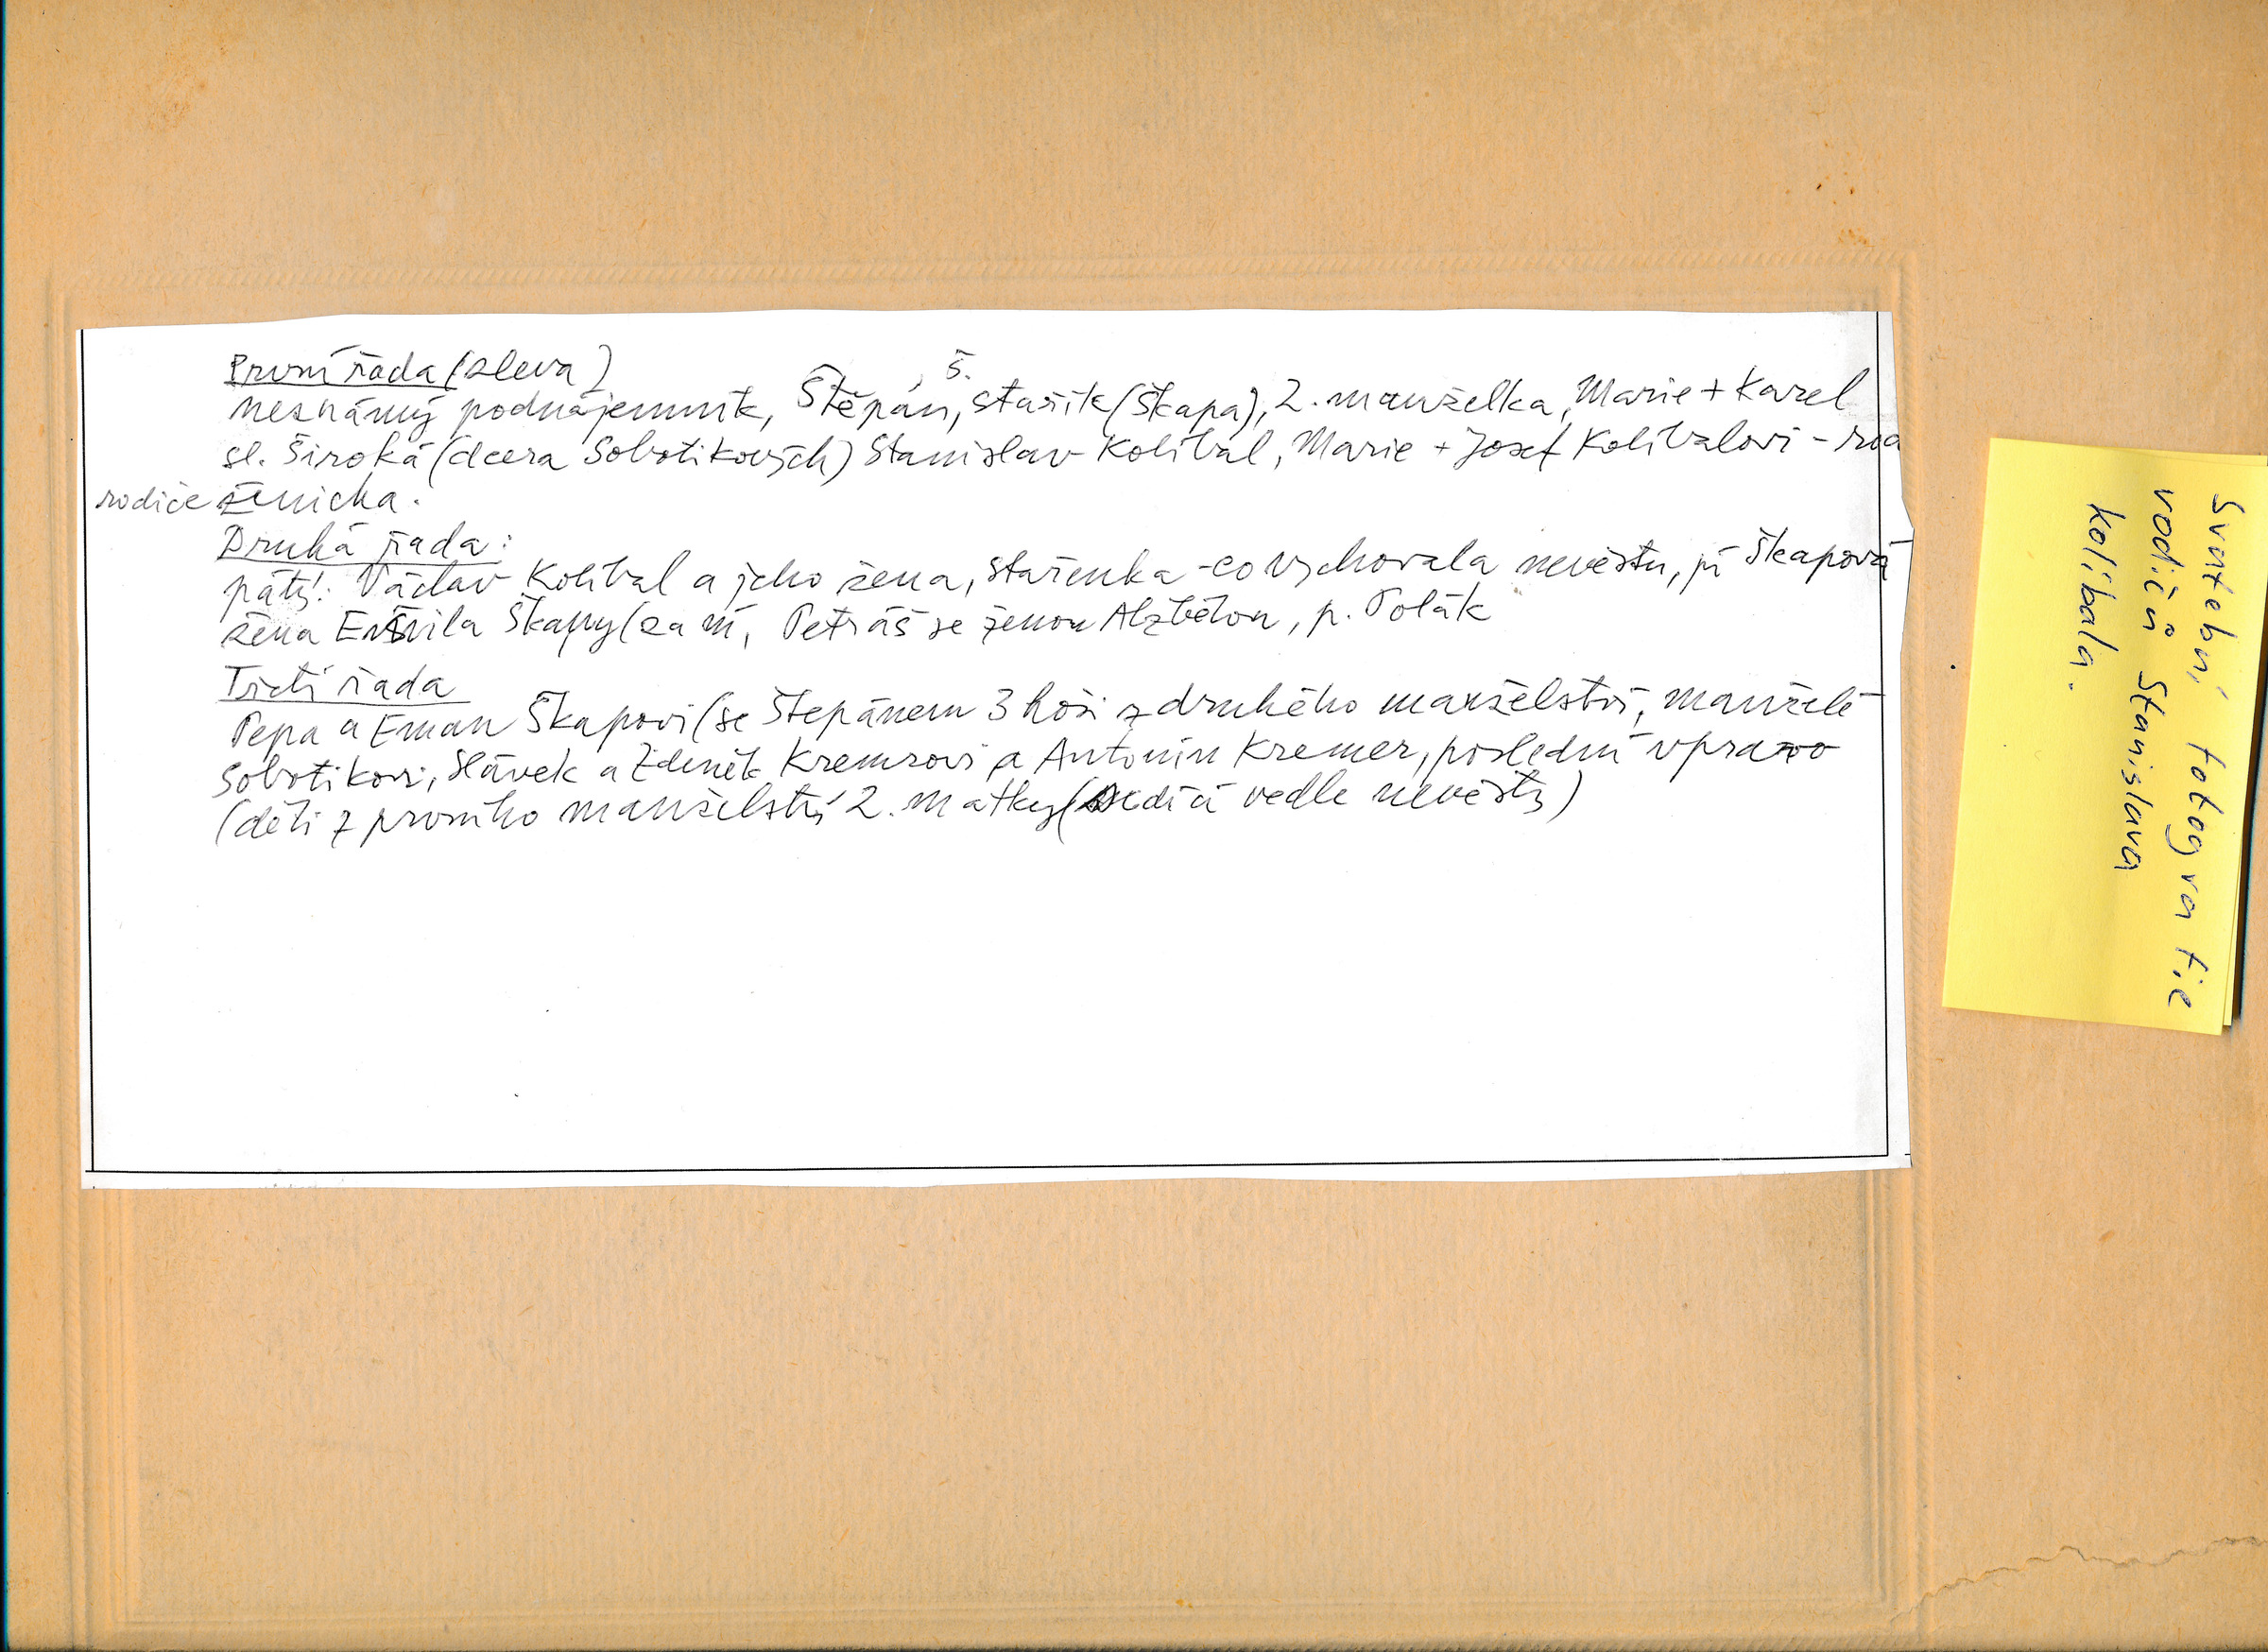 První řada (zleva)
neznámý podnájemník, Štěpán, Š. stařík (Škapa), 2. manželka, Marie + Karel
sl. Široká (dcera Sobotikových) Stanislav Kolíbal, Marie + Josef Kolíbalovi - rod
rodiče ženicha.
Druhá řada:
pátý: Václav Kolíbal a jeho žena, stařenka - co vychovala nevěstu, pí Škapová
žena Emila Škapy (za ní, Petráš se ženou Alžbětou, p. Polák
Třetí řada
Pepa a Eman Škapovi (se Štěpánem 3 hoši z druhého manželství, manželé
Sobotíkovi, Slávek a Zdeněk Kremrovi a Antonín Kremer, poslední vpravo
(děti z prvního manželství 2. matky (sedící vedle nevěsty)
Svatební fotografie
rodičů Stanislava
Kolíbala.